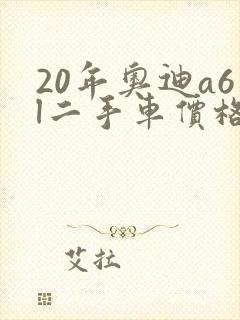 20年奥迪a6
l二手車價格
艾拉